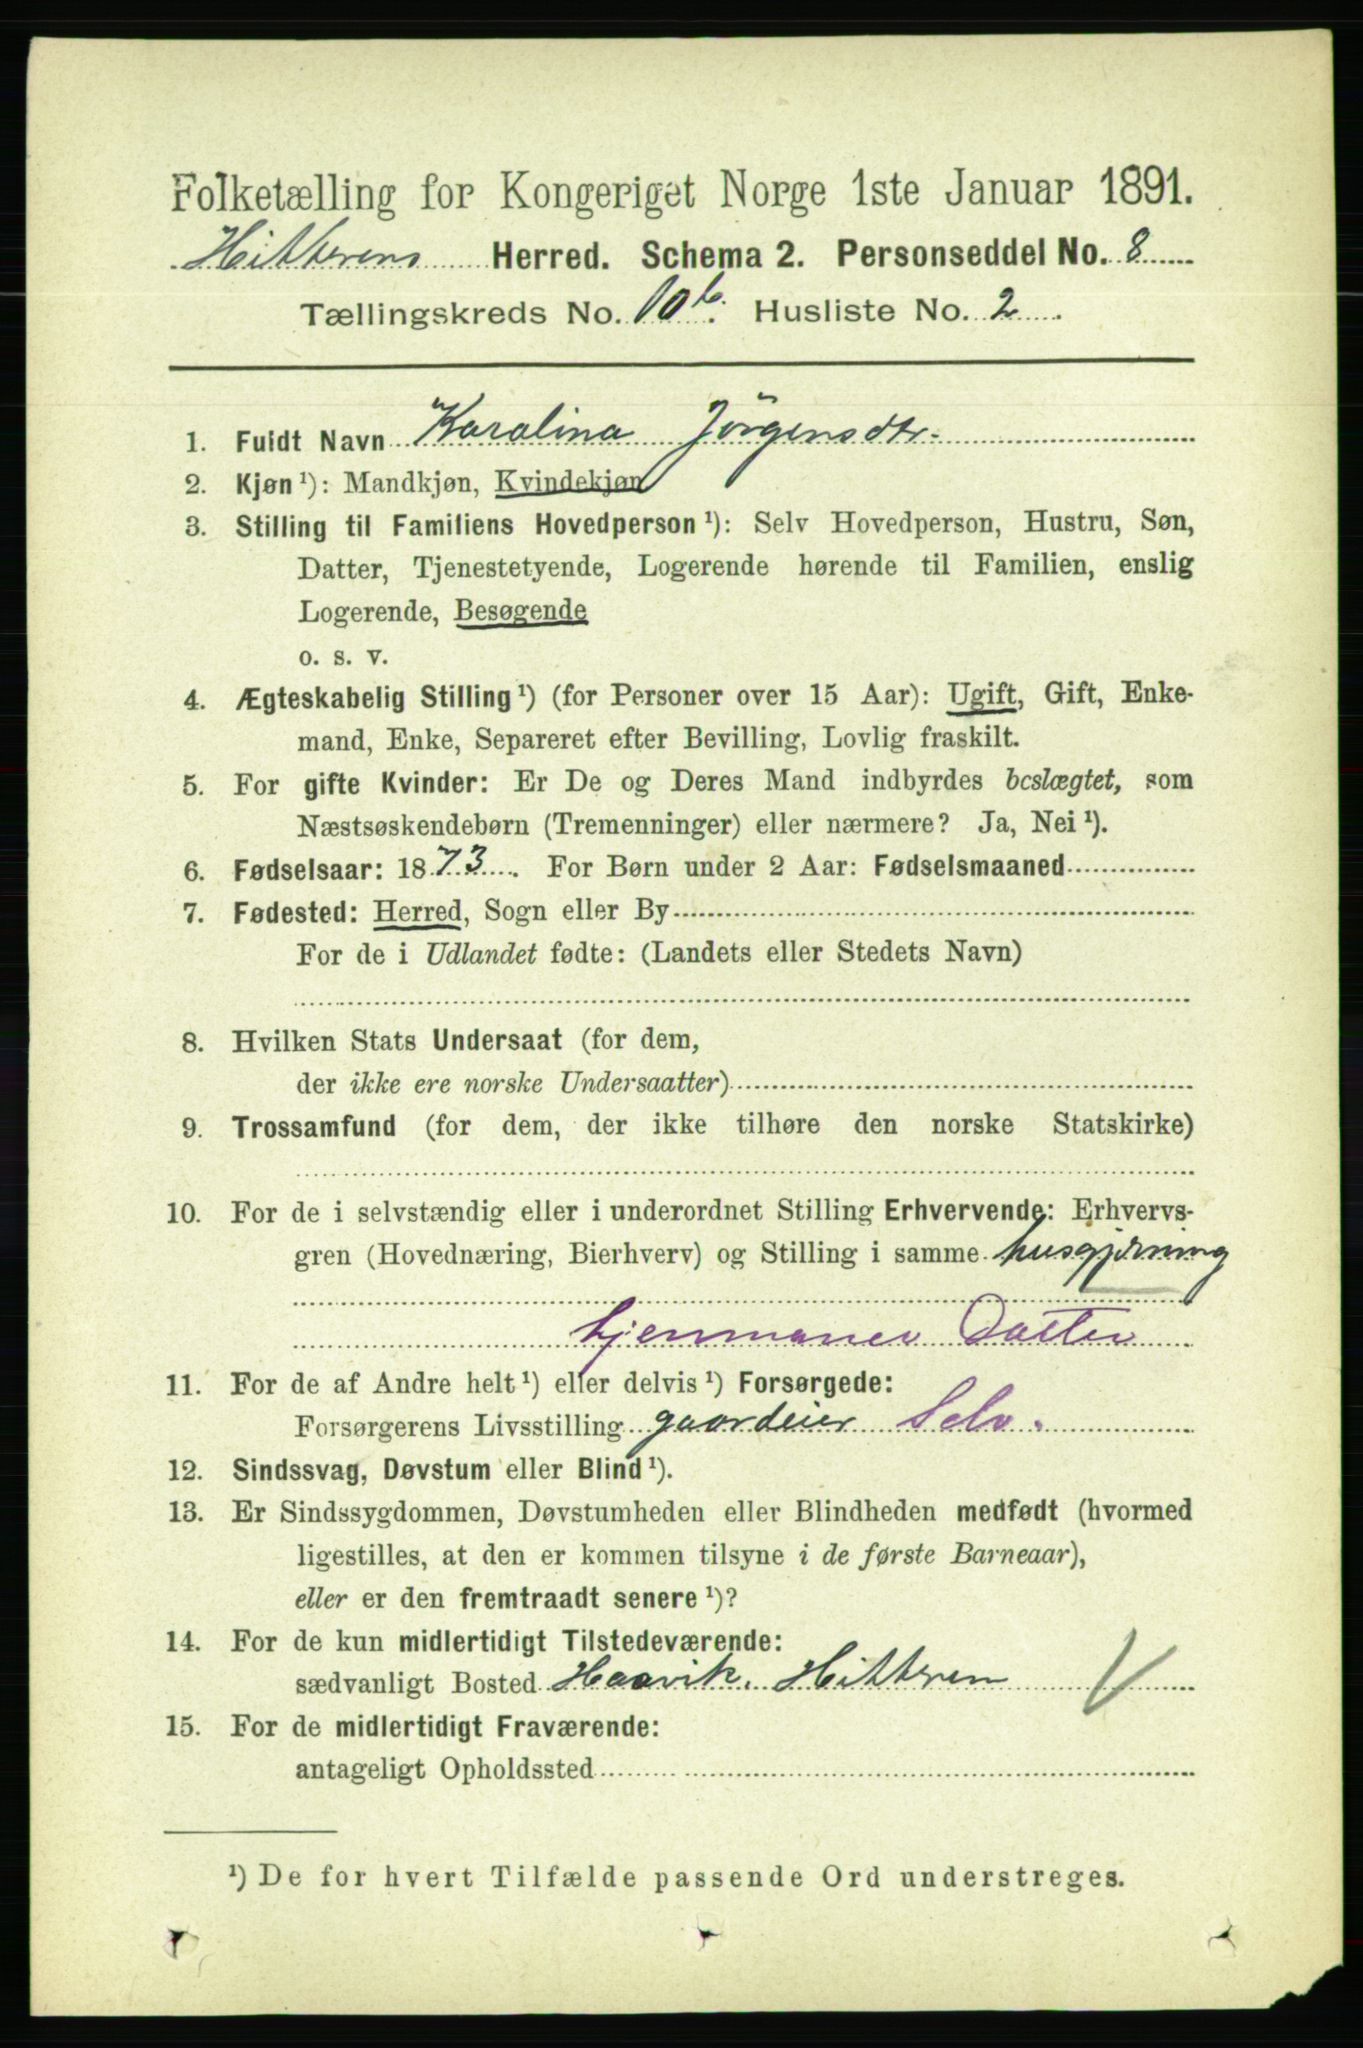 Folketælling for Kongeriget Norge 1ste Januar 1891.
Hitterens Herred. Schema 2. Personseddel No. 8
Tællingskreds No. 10 b. Husliste No. 2
1. Fuldt Navn Karalina Jörgensdtr.
2. Kjøn ¹): Mandkjøn, Kvindekjøn
3. Stilling til Familiens Hovedperson ¹): Selv Hovedperson, Hustru, Søn,
Datter, Tjenestetyende, Logerende hørende til Familien, enslig
Logerende, Besøgende
o. s. v.
4. Ægteskabelig Stilling ¹) (for Personer over 15 Aar): Ugift, Gift, Enke-
mand, Enke, Separeret efter Bevilling, Lovlig fraskilt.
5. For gifte Kvinder: Er De og Deres Mand indbyrdes beslægtet, som
Næstsøskendebørn (Tremenninger) eller nærmere? Ja, Nei ¹).
6. Fødselsaar: 1873. For Børn under 2 Aar: Fødselsmaaned
7. Fødested: Herred, Sogn eller By
For de i Udlandet fødte: (Landets eller Stedets Navn)
8. Hvilken Stats Undersaat (for dem,
der ikke ere norske Undersaatter)
9. Trossamfund (for dem, der ikke tilhøre den norske Statskirke)
10. For de i selvstændig eller i underordnet Stilling Erhvervende: Erhvervs-
gren (Hovednæring, Bierhverv) og Stilling i samme husgjerning
hjemmanev Datter
11. For de af Andre helt ¹) eller delvis ¹) Forsørgede:
Forsørgerens Livsstilling gaardeier Selv.
12. Sindssvag, Døvstum eller Blind ¹).
13. Er Sindssygdommen, Døvstumheden eller Blindheden medfødt (hvormed
ligestilles, at den er kommen tilsyne i de første Barneaar),
eller er den fremtraadt senere ¹)?
14. For de kun midlertidigt Tilstedeværende:
sædvanligt Bosted Haavik. Hitteren
15. For de midlertidigt Fraværende:
antageligt Opholdssted
¹) De for hvert Tilfælde passende Ord understreges.